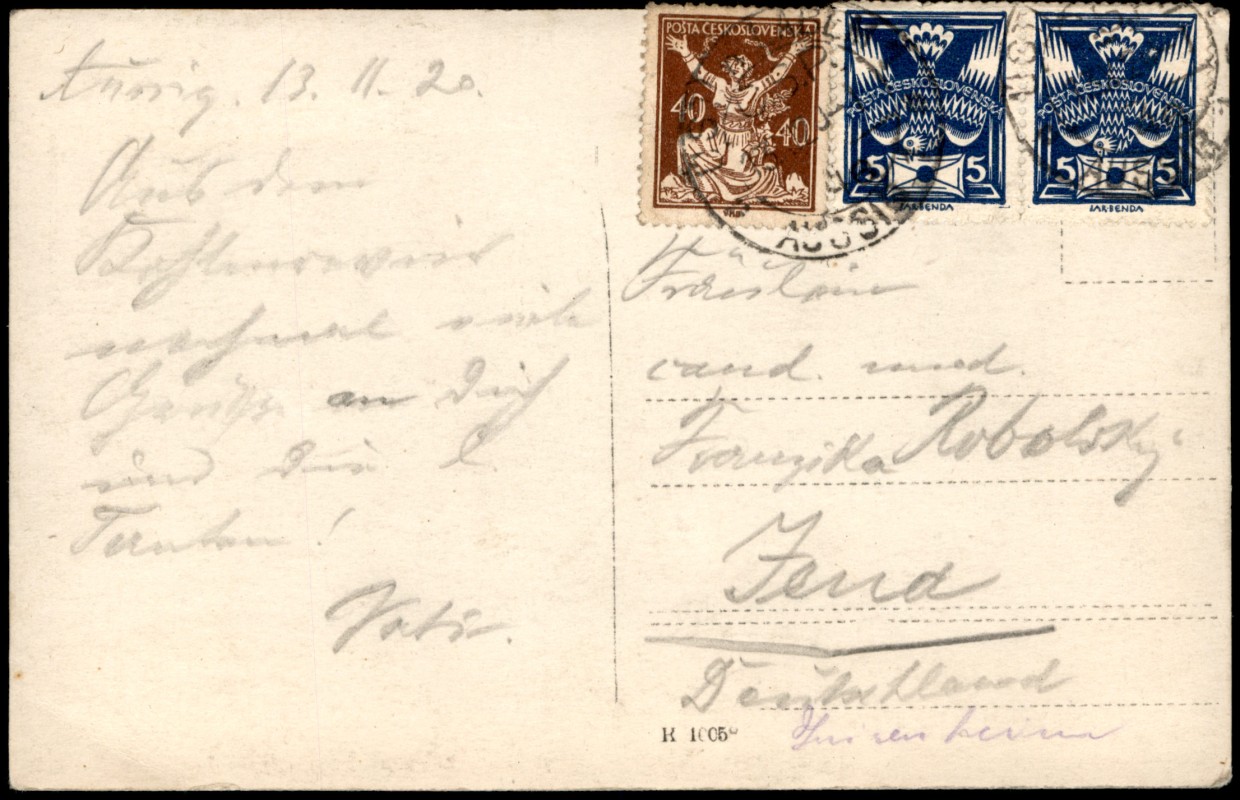 Aussig. 13. 11. 20.
Aus dem
Kohlenrevier
nochmal viele
Grüße an Dich
und die l.
Tanten!
Vati.
POŠTA ČESKOSLOVENSKÁ
40 40
POŠTA ČESKOSLOVENSKÁ
5 5
JAK·BENDA
POŠTA ČESKOSLOVENSKÁ
5 5
JAK·BENDA
AUSSIG
Fräulein
cand. med.
Franziska Robolsky
Jena
Deutschland
K 1605